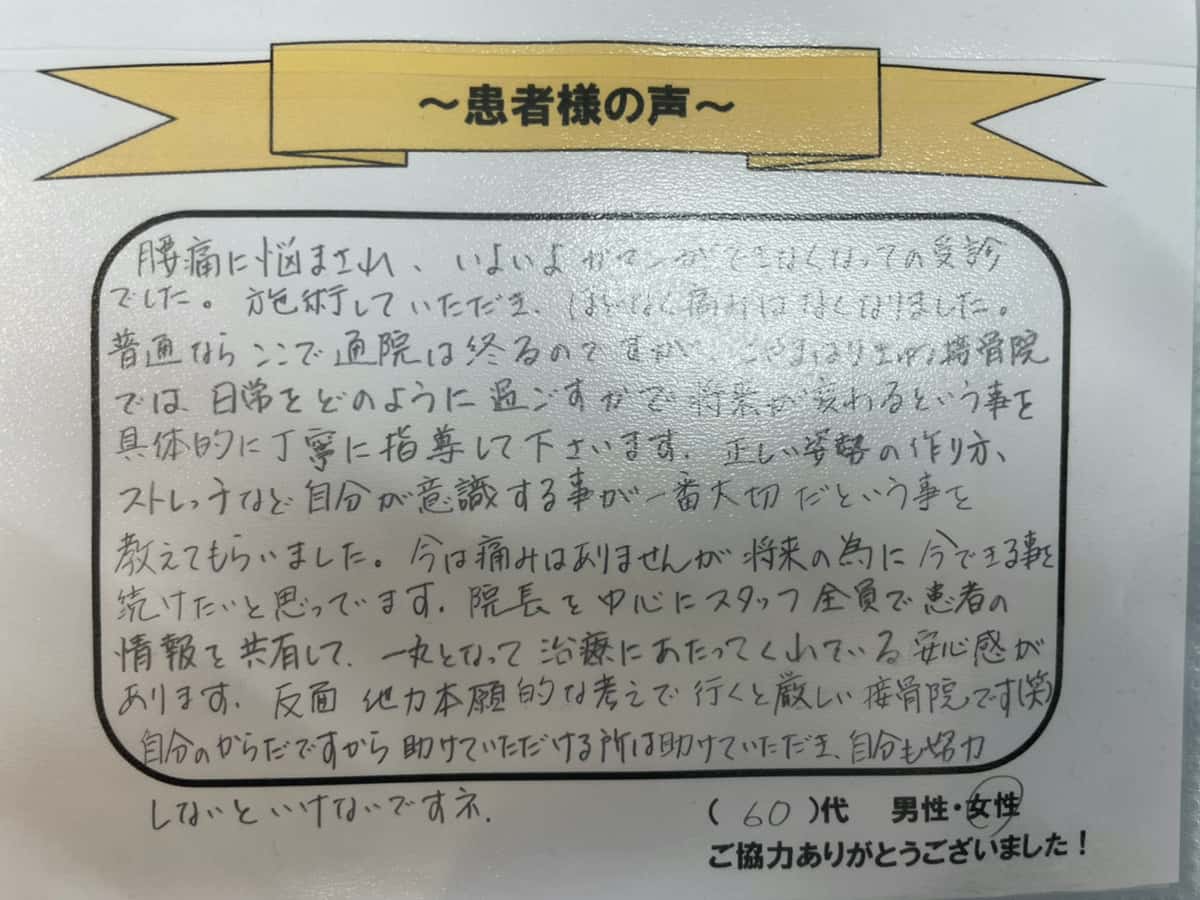 ～患者様の声～
腰痛に悩まされ、いよいよガマンができなくなっての受診
でした。施術していただき、ほどなく痛みはなくなりました。
普通ならここで通院は終るのですが、接骨院
では、日常をどのように過ごすかで将来が変わるという事を
具体的に丁寧に指導して下さいます。正しい姿勢の作り方、
ストレッチなど自分が意識する事が一番大切だという事を
教えてもらいました。今は痛みはありませんが将来の為に今できる事を
続けたいと思ってます。院長を中心にスタッフ全員で患者の
情報を共有して、一丸となって治療にあたってくれている安心感が
あります。反面他力本願的な考えで行くと厳しい接骨院です(笑)
自分のからだですから助けていただける所は助けていただき、自分も努力
しないといけないですネ.
(60)代 男性・女性
ご協力ありがとうございました！